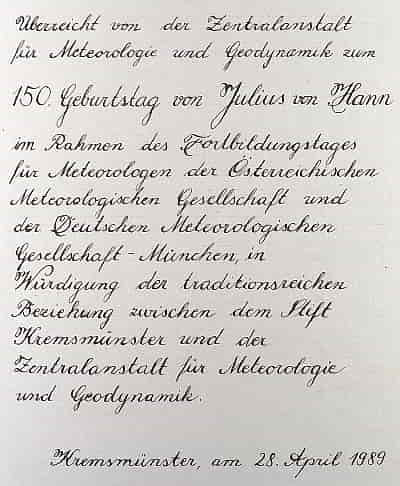 Überreicht von der Zentralanstalt
für Meteorologie und Geodynamik zum
150. Geburtstag von Julius von Hann
im Rahmen des Fortbildungstages
für Meteorologen der Österreichischen
Meteorologischen Gesellschaft und
der Deutschen Meteorologischen
Gesellschaft - München, in
Würdigung der traditionsreichen
Beziehung zwischen dem Stift
Kremsmünster und der
Zentralanstalt für Meteorologie
und Geodynamik.
Kremsmünster, am 28. April 1989